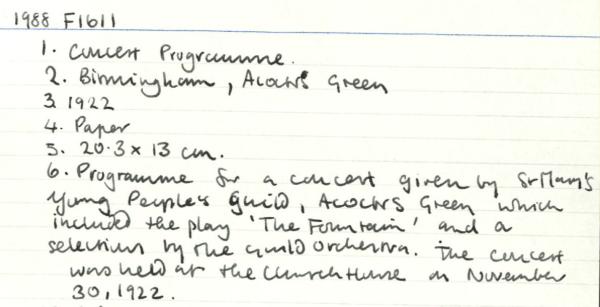 1988 F1611
1. Concert Programme.
2. Birmingham, Acocks Green
3. 1922
4. Paper
5. 20.3 x 13 cm.
6. Programme for a concert given by St Mary's
Young People's Guild, Acocks Green which
included the play 'The Fountain' and a
selection by the Guild Orchestra. The concert
was held at the Church House on November
30, 1922.